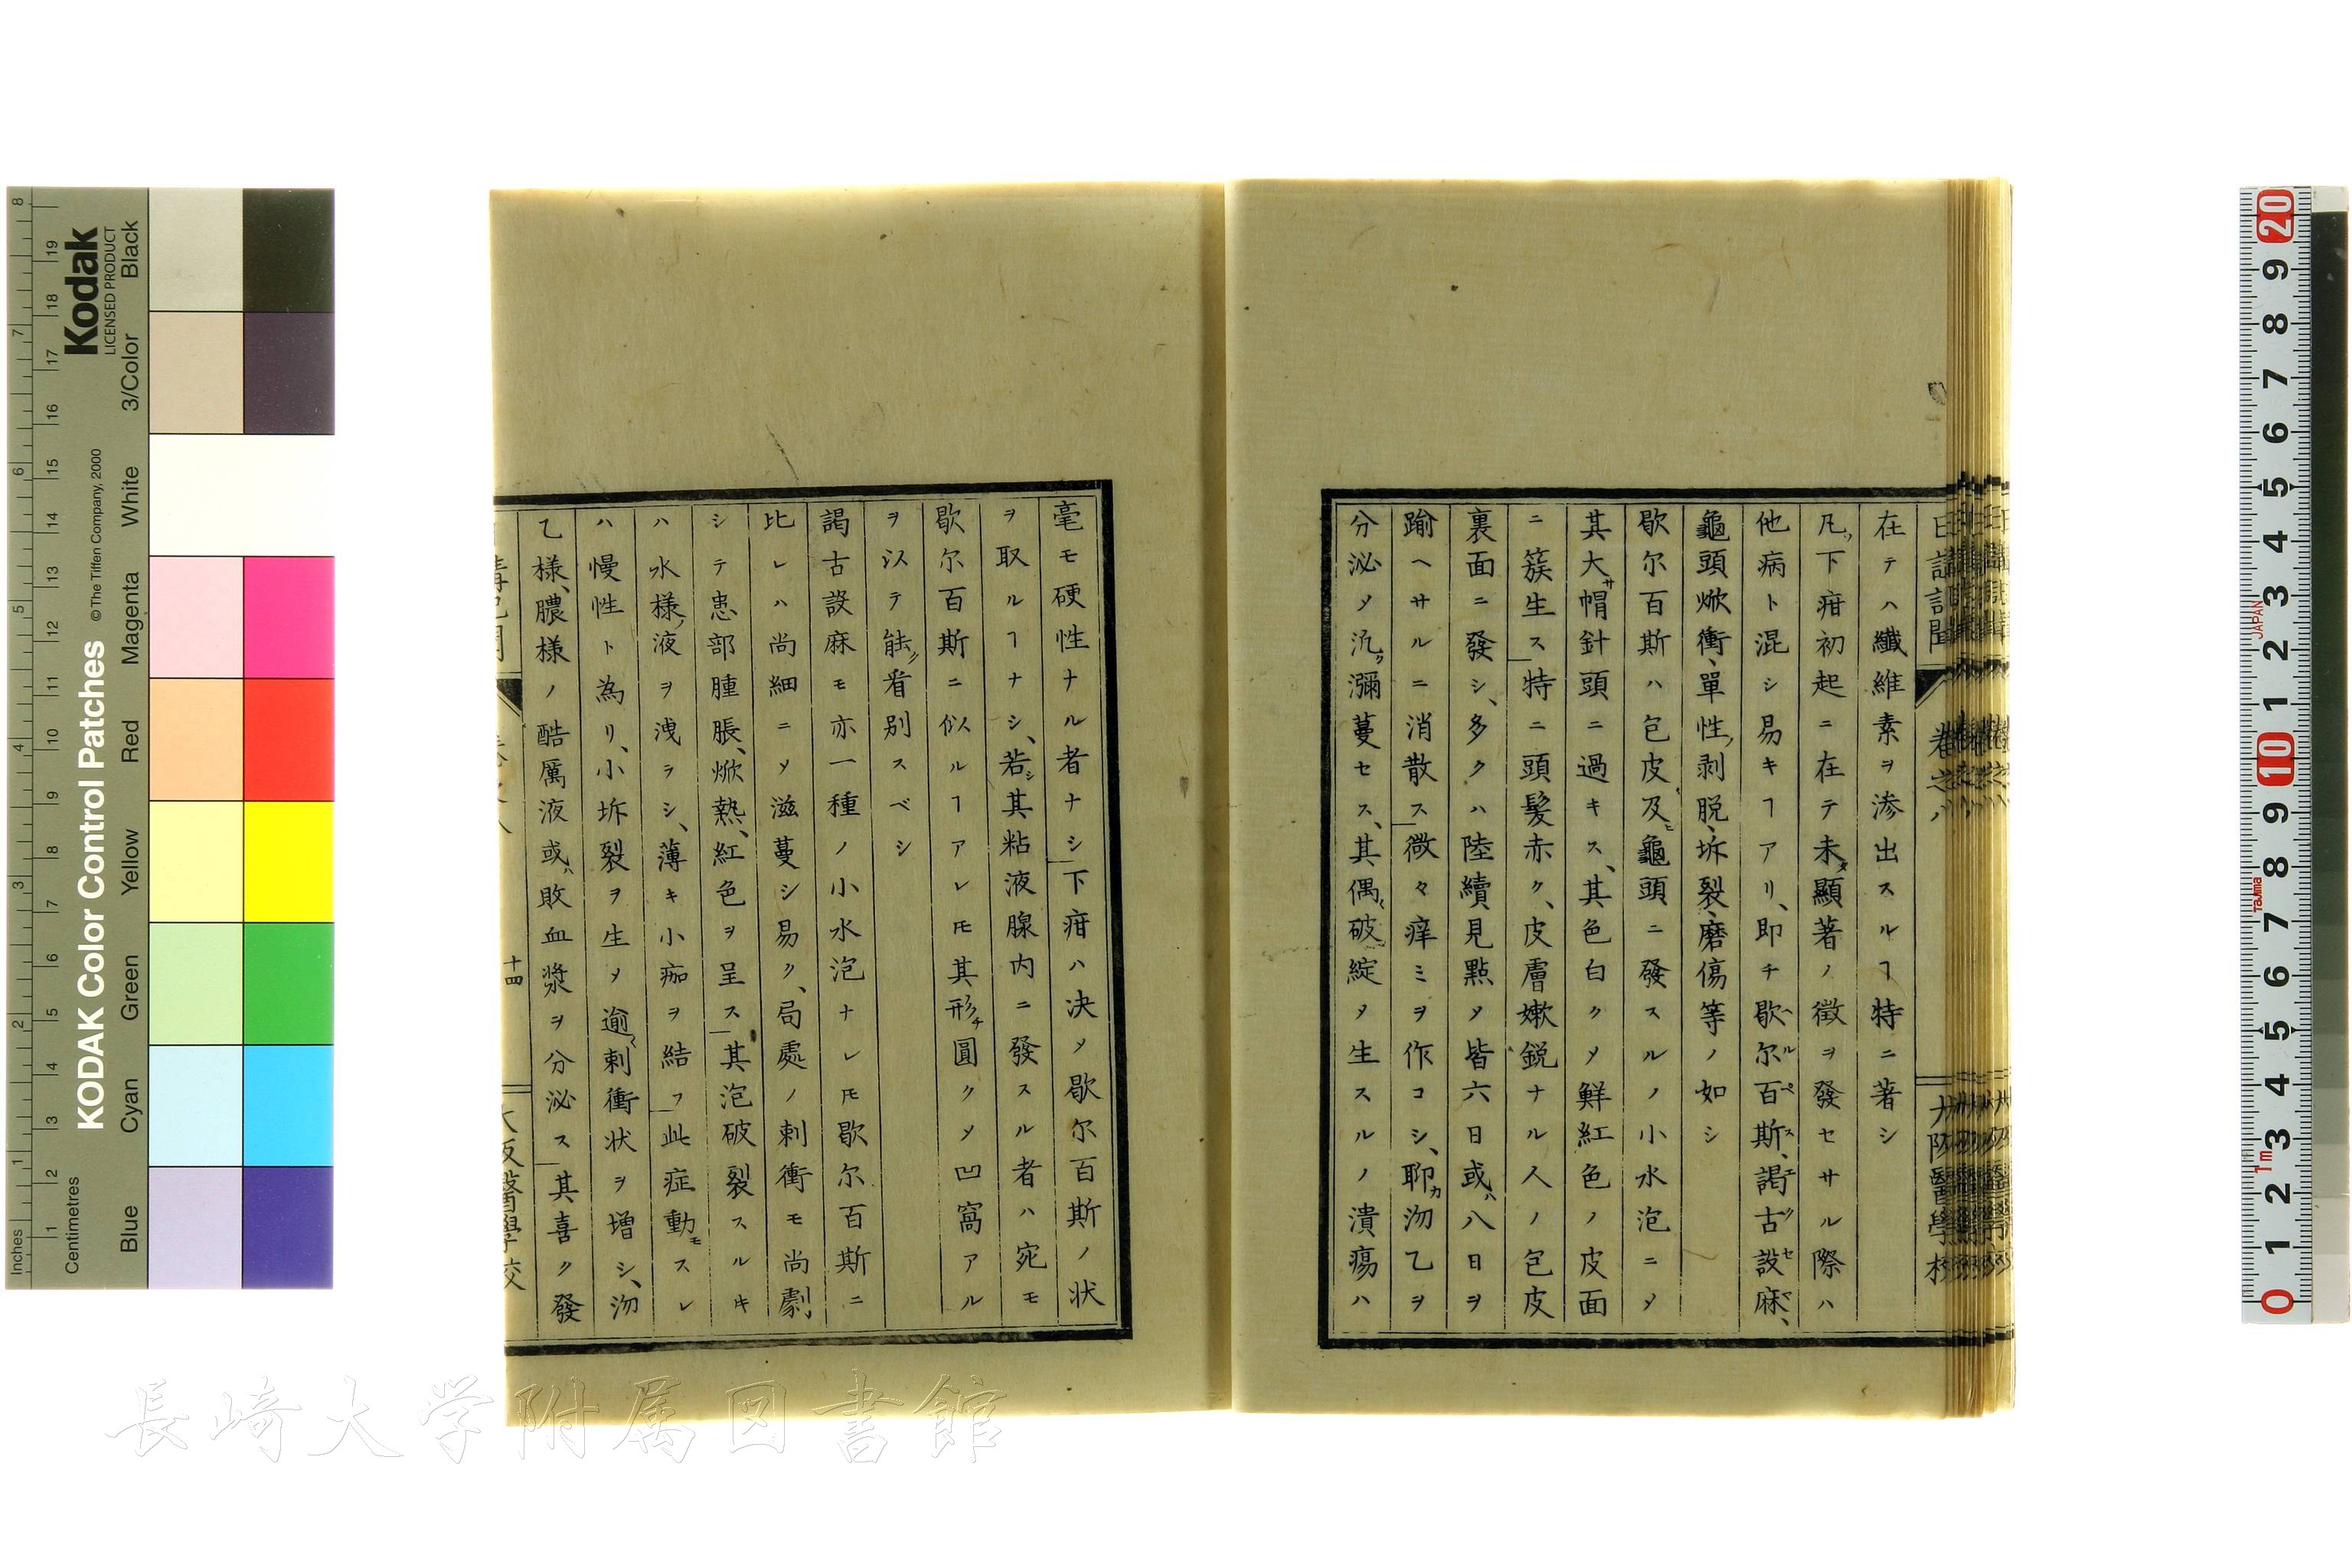 日講記聞 卷之八 大阪醫學校
在テハ纖維素ヲ滲出スルヿ特ニ著シ
凡ソ下疳初起ニ在テ未タ顯著ノ徴ヲ發セサル際ハ
他病ト混シ易キヿアリ、即チ歇尓百斯、謁古設麻、
龜頭焮衝、單性ノ剥脱、坼裂、磨傷等ノ如シ
歇尓百斯ハ包皮及ヒ龜頭ニ發スルノ小水泡ニメ
其大サ帽針頭ニ過キス、其色白クメ鮮紅色ノ皮面
ニ簇生ス特ニ頭髪赤ク、皮膚嫩鋭ナル人ノ包皮
裏面ニ發シ、多クハ陸續見點メ皆六日或ハ八日ヲ
踰ヘサルニ消散ス微々痒ミヲ作コシ、聊カ沕乙ヲ
分泌メ汎ク瀰蔓セス、其偶〻破綻メ生スルノ潰瘍ハ
毫モ硬性ナル者ナシ下疳ハ决メ歇尓百斯ノ状
ヲ取ルヿナシ、若シ其粘液腺内ニ發スル者ハ宛モ
歇尓百斯ニ似ルヿアレモ其形チ圓クメ凹窩アル
ヲ以テ能ク看別スベシ
謁古設麻モ亦一種ノ小水泡ナレモ歇尓百斯ニ
比レハ尚細ニメ滋蔓シ易ク、局處ノ刺衝モ尚劇
シテ患部腫脹、焮熱、紅色ヲ呈ス其泡破裂スルキ
ハ水様ノ液ヲ洩ラシ、薄キ小痂ヲ結フ此症動モスレ
ハ慢性ト為リ、小坼裂ヲ生メ逾〻刺衝状ヲ増シ、沕
乙様、膿様ノ酷厲液或ハ敗血漿ヲ分泌ス其喜ク發
十四
大阪醫學校
Kodak
LICENSED PRODUCT
KODAK Color Control Patches
©The Tiffen Company, 2000
Inches
Centimetres
Blue Cyan Green Yellow Red Magenta White 3/Color Black
JAPAN
Tajima
1m
長崎大学附属図書館